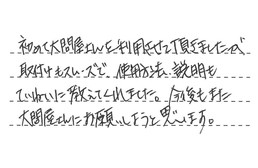 初めて大問屋さんを利用させて頂きましたが
取付けもスムーズで、使用方法、説明も
ていねいに教えてくれました。今後もまた
大問屋さんにお願いしようと思います。